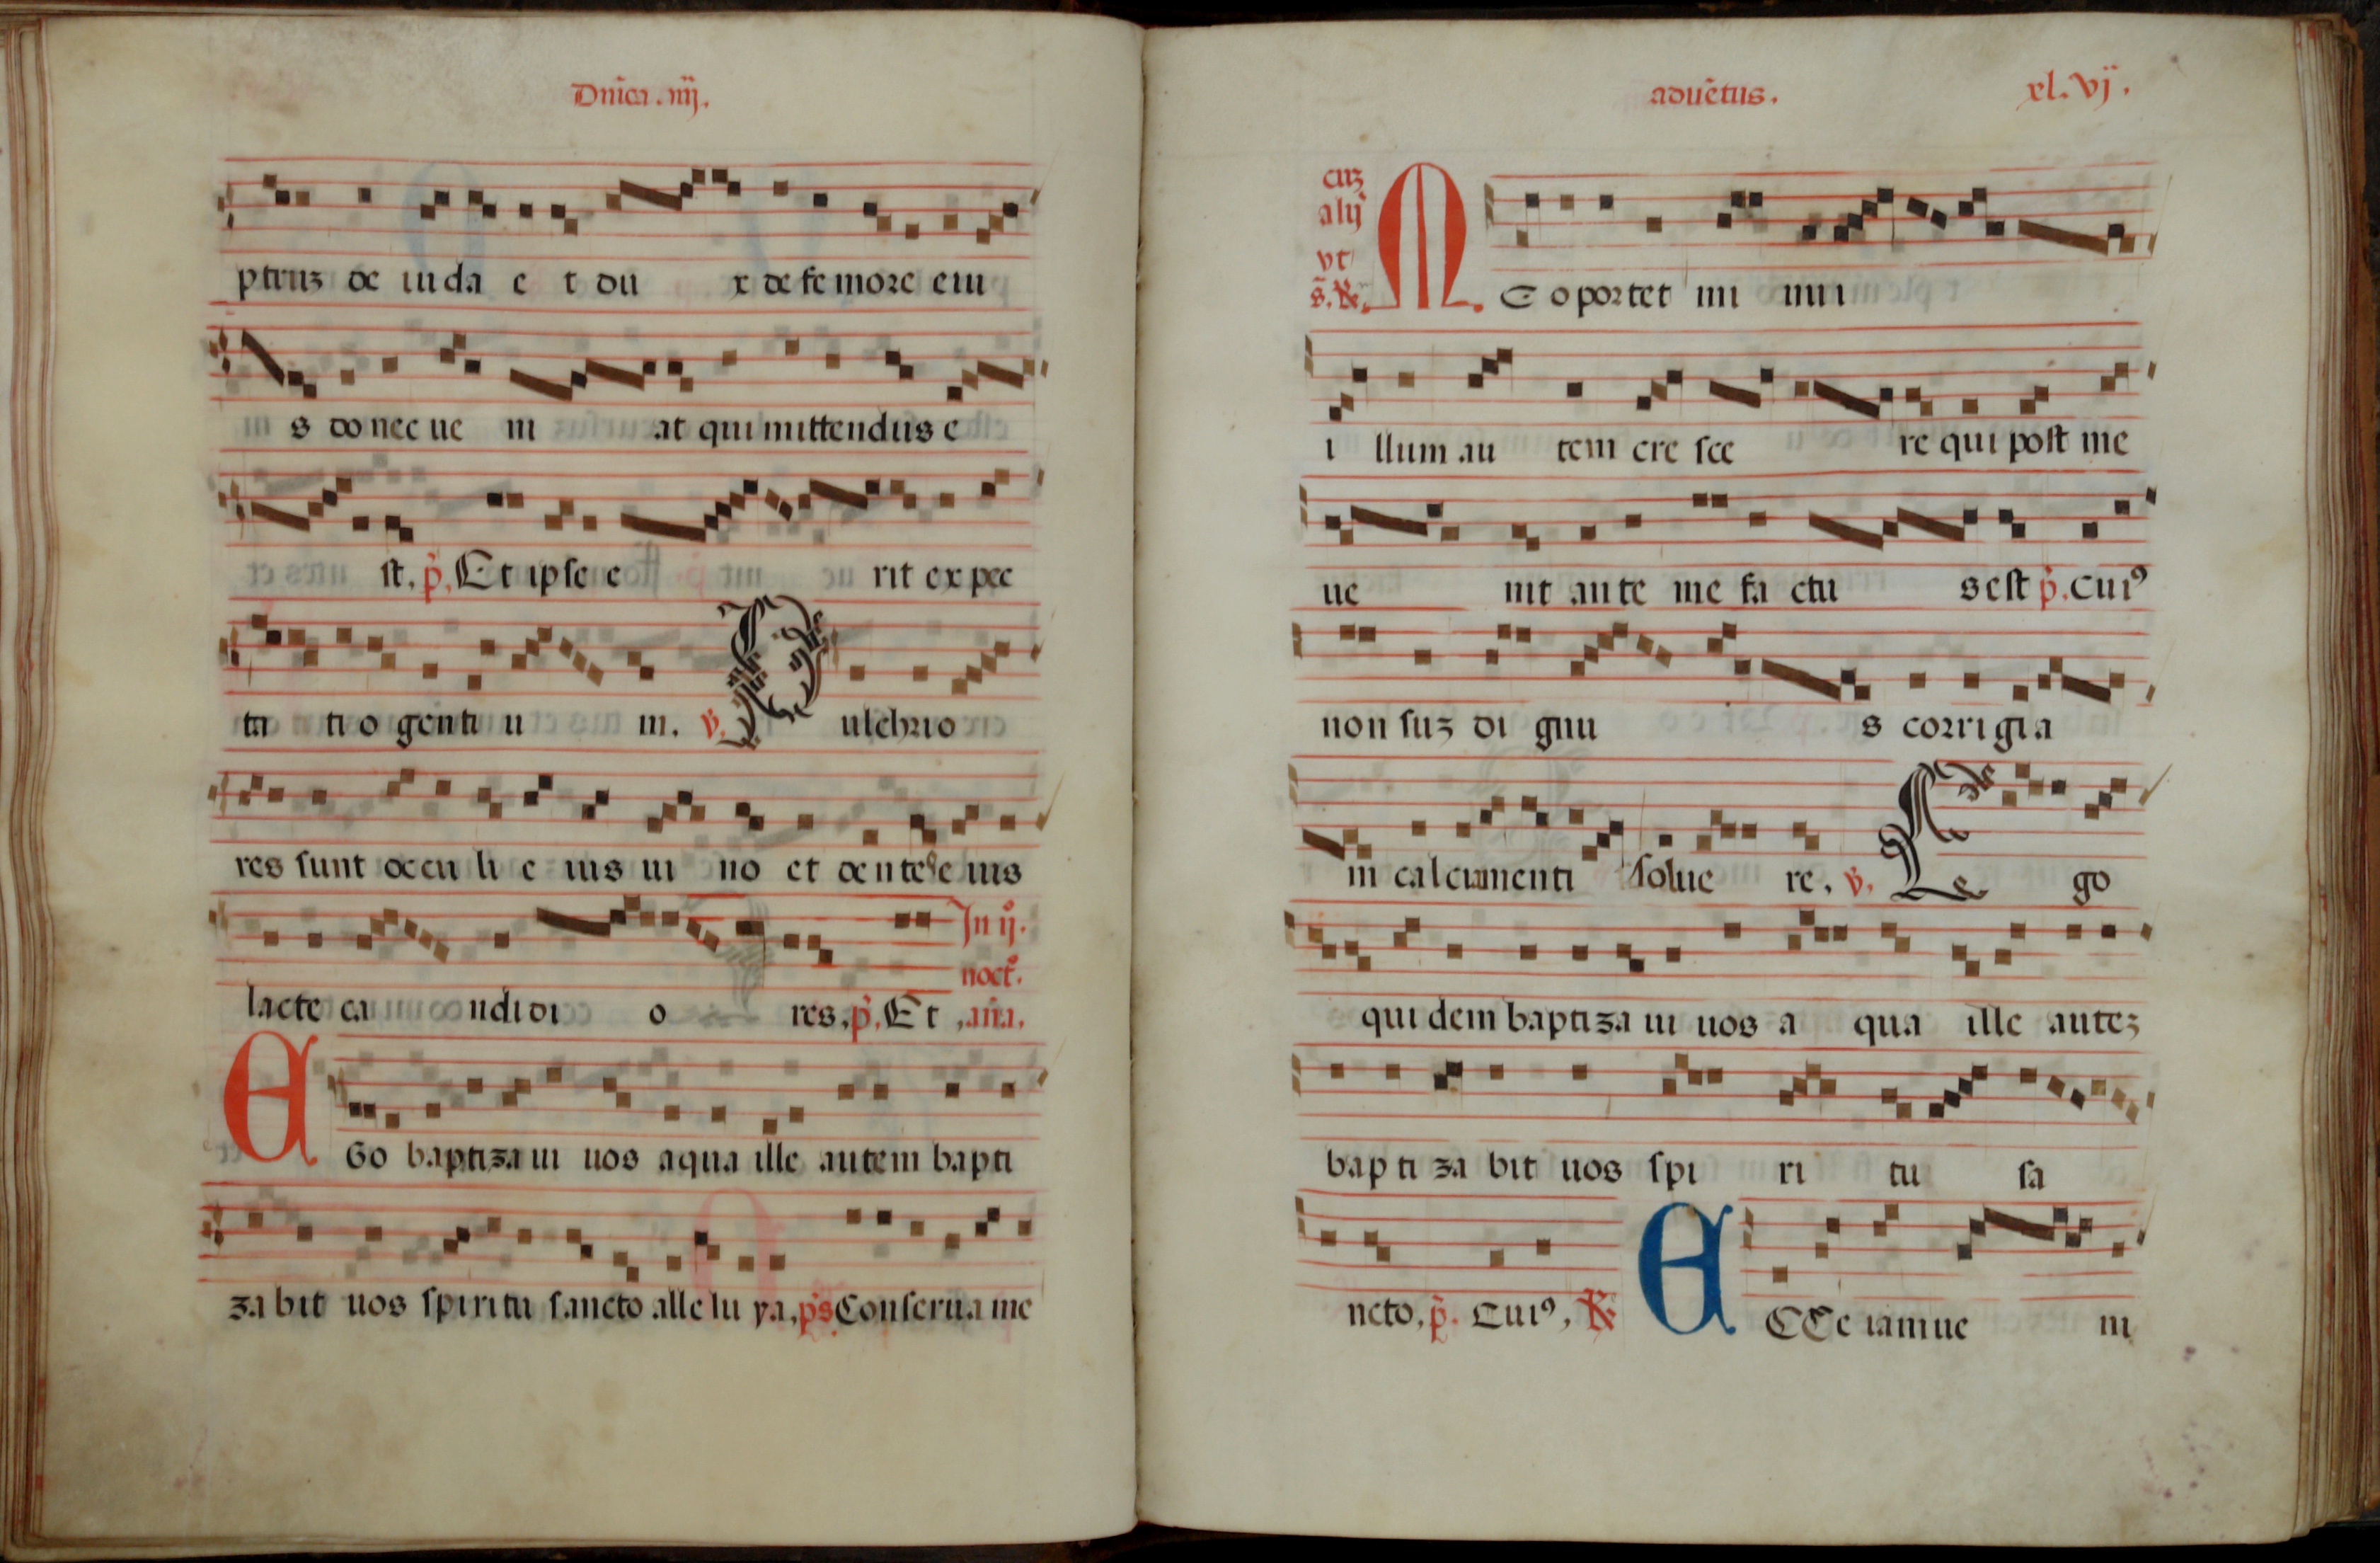 Dnica. iiij.
ptruz de iuda e t du x de femore eiu
s donec ue ni at qui mittendus e
st. p. Et ipse e rit expec
ta tio genti u m. v. Pulchrio
res sunt occu li e ius ui no et dentes e ius
In ij.
noct.
lacte ca ndidi o res. p. Et, aña.
EGo baptizaui uos aqua ille autem bapti
zabit uos spiritu sancto alle lu ya, ps Conserua me
aduētus. xl.vj.
cuz
alij
vt
s. R.
ME oportet mi nui
i llum au tem cre sce re qui post me
ue nit ante me fa ctu s est p. cui9
non suz di gnu s corrigia
m calciamenti solue re. v. Ego
quidem baptizaui uos a qua ille autez
bapti za bit uos spi ri tu sa
ncto, p. Cui9, R ECCe iam ue ni